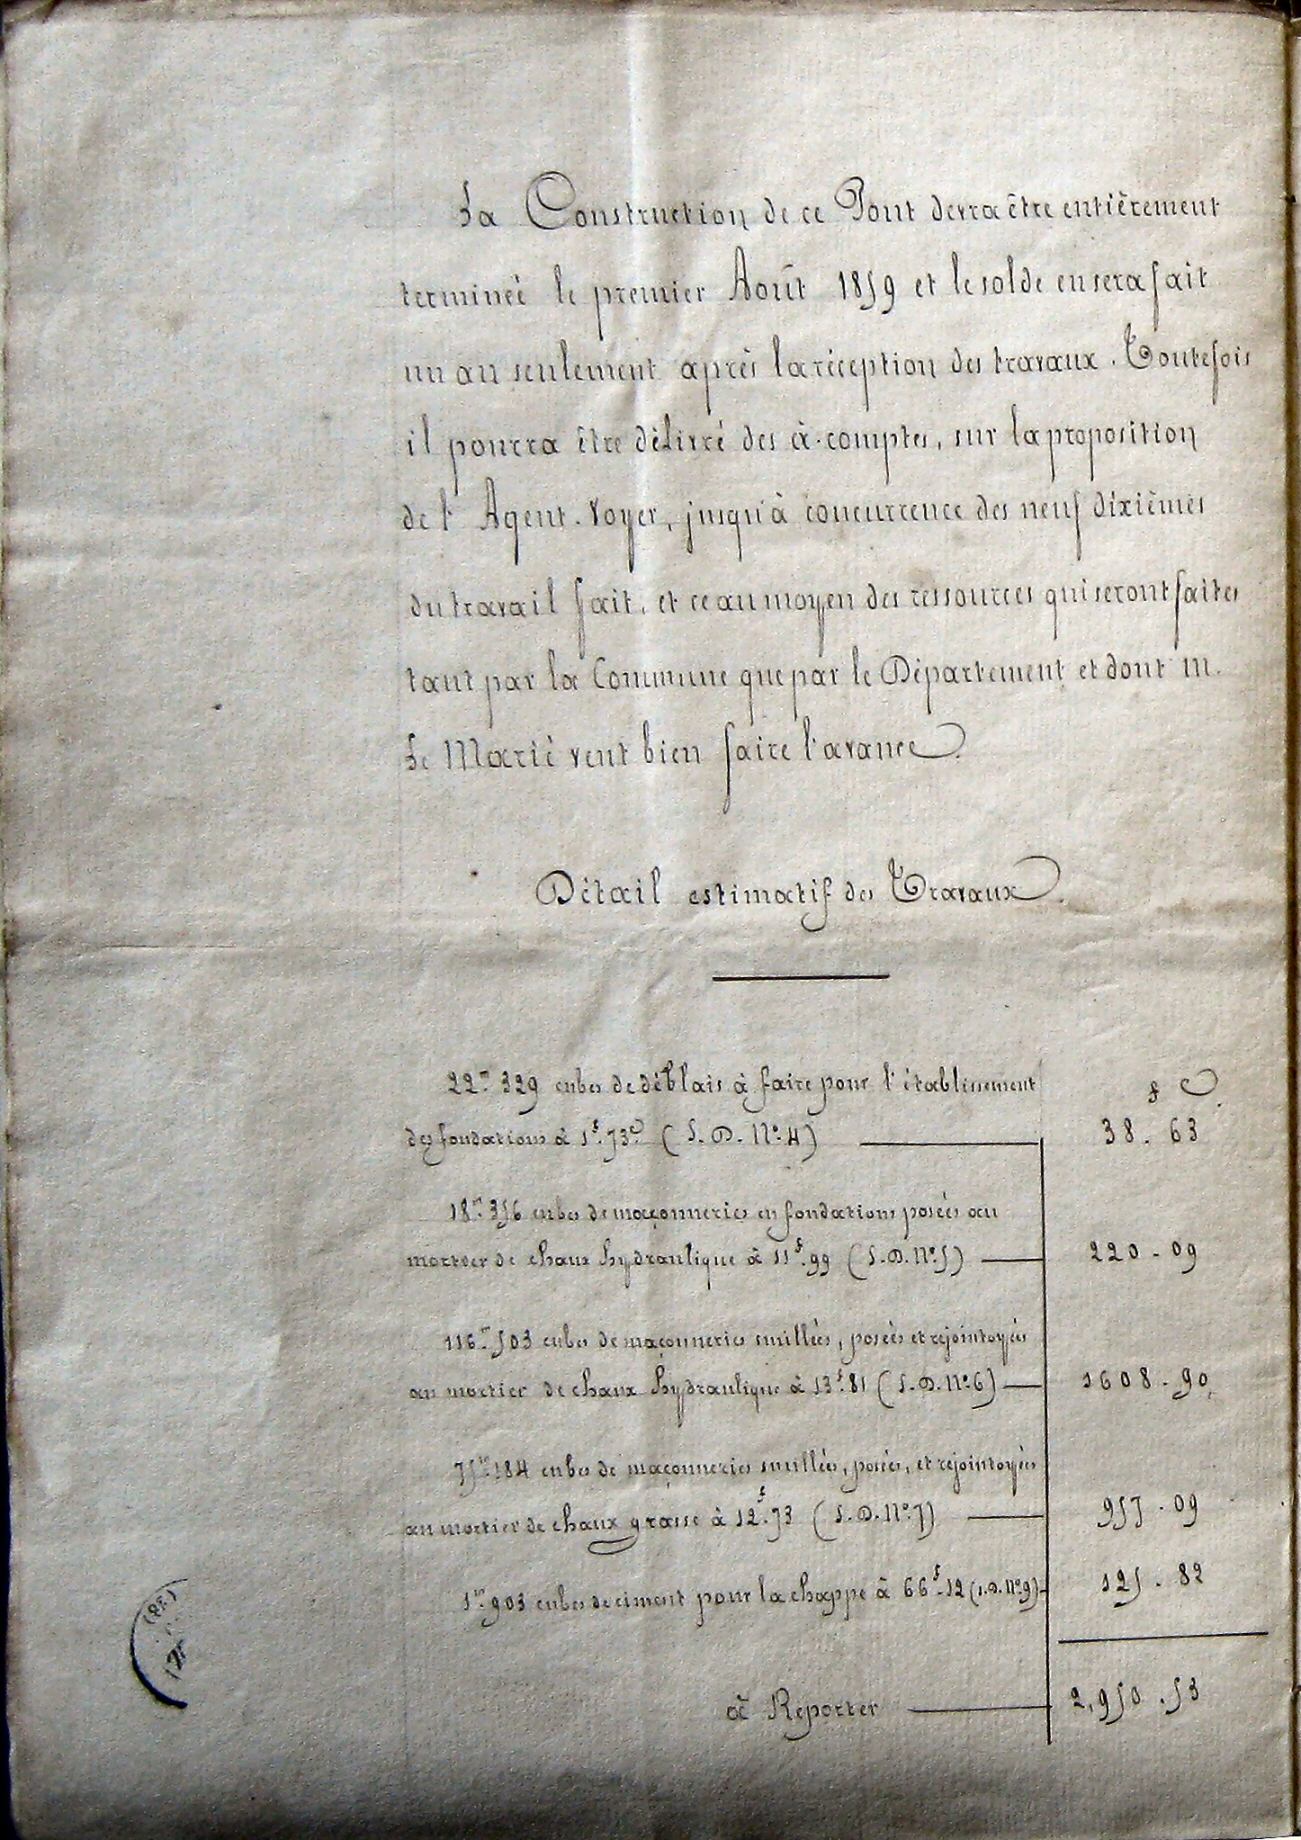 La Construction de ce Pont devra être entièrement
terminée le premier Août 1859 et le solde en sera fait
un an seulement après la réception des travaux. Toutefois
il pourra être délivré des à-comptes, sur la proposition
de l'Agent-Voyer, jusqu'à concurrence des neuf dixièmes
du travail fait, et ce au moyen des ressources qui seront faites
tant par la Commune que par le Département et dont M.
Le Marié veut bien faire l'avance.
Détail estimatif des Travaux.
22m 329 cubes de déblais à faire pour l'établissement
f c
des fondations à 1f.73c (S.D. No. 4) 38.63
18m 356 cubes de maçonneries en fondations posées au
mortier de chaux hydraulique à 11f.99 (S.D. No. 5) 220-09
116m 503 cubes de maçonneries smillées, posées et rejointoyées
au mortier de chaux hydraulique à 13f.81 (S.D. No. 6) 1608-90
75m 184 cubes de maçonneries smillées, posées, et rejointoyées
au mortier de chaux grasse à 12f.73 (S.D. No. 7) 957-09
1m 903 cubes de ciment pour la chappe à 66f-12 (S.D. No. 9) 125.82
à Reporter 2,950.53